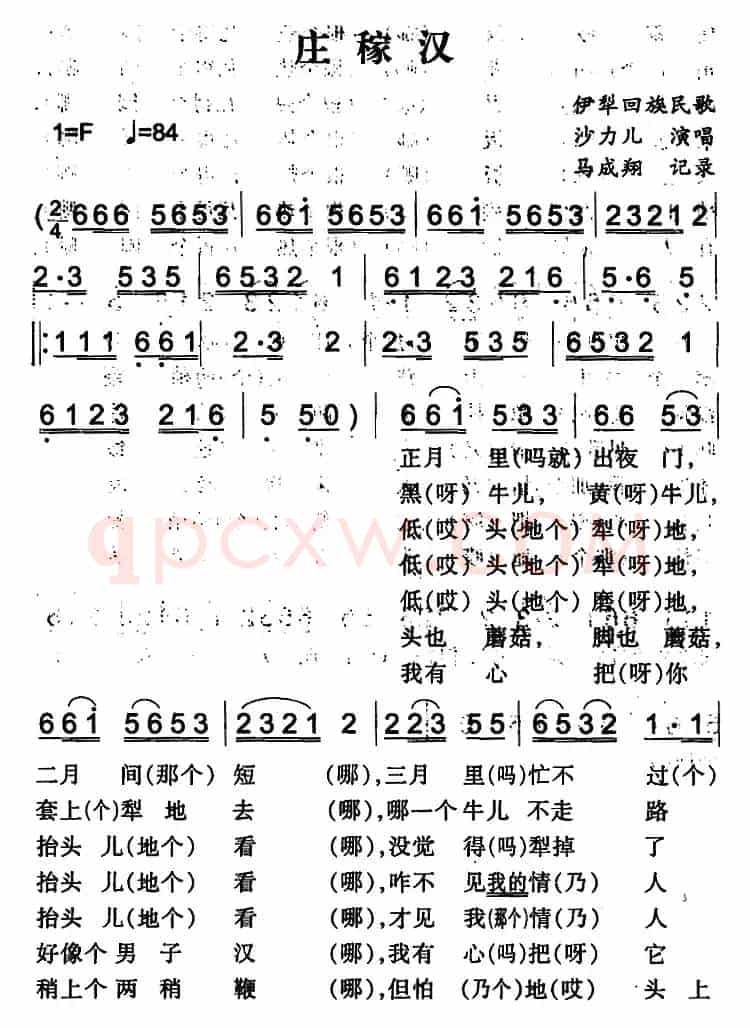 庄稼汉
伊犁回族民歌
1=F ♩=84
沙力儿 演唱
马成翔 记录
( 2/4 666 5653 | 66i 5653 | 66i 5653 | 23212 |
2·3 535 | 6532 1 | 6123 216 | 5·6 5 |
|: 111 661 | 2·3 2 | 2·3 535 | 6532 1 |
6123 216 | 5 50 ) | 66i 533 | 66 53 |
正月 里(吗就)出夜 门,
黑(呀)牛儿, 黄(呀)牛儿,
低(哎)头(地个)犁(呀)地,
低(哎)头(地个)犁(呀)地,
低(哎)头(地个)磨(呀)地,
头也 蘑菇, 脚也 蘑菇,
我有 心 把(呀)你
qpcxw.COM
66i 5653 | 2321 2 | 223 55 | 6532 1·1 |
二月 间(那个)短 (哪),三月 里(吗)忙不 过(个)
套上(个)犁地 去 (哪),哪一个牛儿 不走 路
抬头 儿(地个)看 (哪),没觉 得(吗)犁掉 了
抬头 儿(地个)看 (哪),咋不 见我的情(乃)人
抬头 儿(地个)看 (哪),才见 我(那个)情(乃)人
好像个 男子 汉 (哪),我有 心(吗)把(呀)它
稍上个 两稍 鞭 (哪),但怕 (乃个)地(哎) 头上